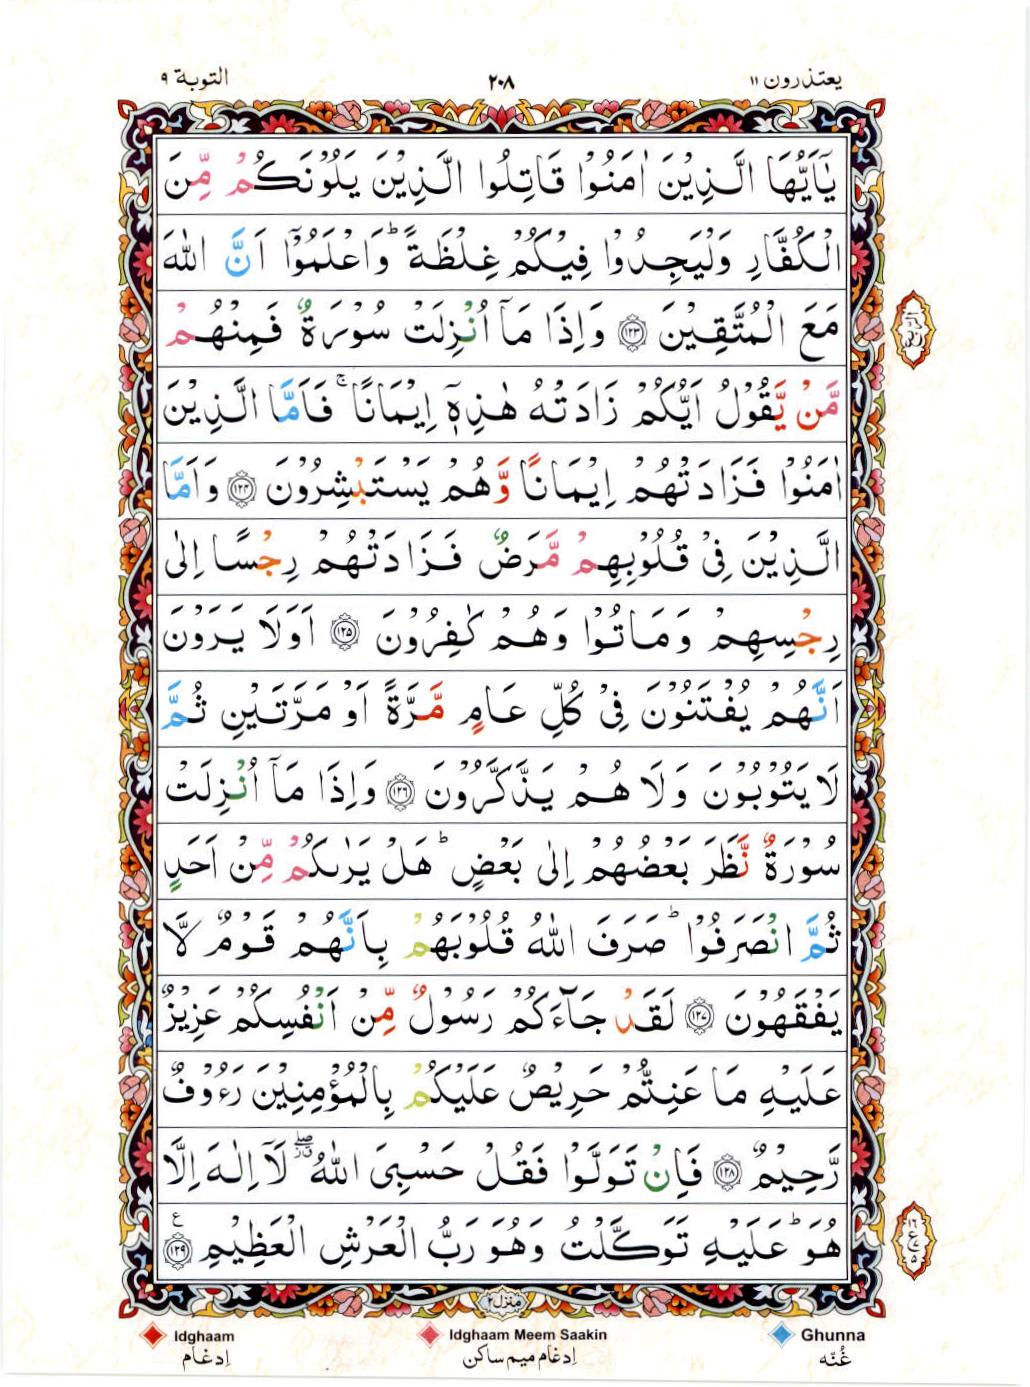 التوبة ٩
٢٠٨
يعتذرون ١١
يٰۤاَيُّهَا الَّذِيْنَ اٰمَنُوْا قَاتِلُوا الَّذِيْنَ يَلُوْنَكُمْ مِّنَ
الْكُفَّارِ وَلْيَجِدُوْا فِيْكُمْ غِلْظَةً ؕ وَاعْلَمُوْۤا اَنَّ اللّٰهَ
مَعَ الْمُتَّقِيْنَ ۝١٢٣ وَاِذَا مَاۤ اُنْزِلَتْ سُوْرَةٌ فَمِنْهُمْ
مَّنْ يَّقُوْلُ اَيُّكُمْ زَادَتْهُ هٰذِهٖۤ اِيْمَانًا ۚ فَاَمَّا الَّذِيْنَ
اٰمَنُوْا فَزَادَتْهُمْ اِيْمَانًا وَّهُمْ يَسْتَبْشِرُوْنَ ۝١٢٤ وَاَمَّا
الَّذِيْنَ فِيْ قُلُوْبِهِمْ مَّرَضٌ فَزَادَتْهُمْ رِجْسًا اِلٰى
رِجْسِهِمْ وَمَاتُوْا وَهُمْ كٰفِرُوْنَ ۝١٢٥ اَوَلَا يَرَوْنَ
اَنَّهُمْ يُفْتَنُوْنَ فِيْ كُلِّ عَامٍ مَّرَّةً اَوْ مَرَّتَيْنِ ثُمَّ
لَا يَتُوْبُوْنَ وَلَا هُمْ يَذَّكَّرُوْنَ ۝١٢٦ وَاِذَا مَاۤ اُنْزِلَتْ
سُوْرَةٌ نَّظَرَ بَعْضُهُمْ اِلٰى بَعْضٍ ؕ هَلْ يَرٰىكُمْ مِّنْ اَحَدٍ
ثُمَّ انْصَرَفُوْا ؕ صَرَفَ اللّٰهُ قُلُوْبَهُمْ بِاَنَّهُمْ قَوْمٌ لَّا
يَفْقَهُوْنَ ۝١٢٧ لَقَدْ جَآءَكُمْ رَسُوْلٌ مِّنْ اَنْفُسِكُمْ عَزِيْزٌ
عَلَيْهِ مَا عَنِتُّمْ حَرِيْصٌ عَلَيْكُمْ بِالْمُؤْمِنِيْنَ رَءُوْفٌ
رَّحِيْمٌ ۝١٢٨ فَاِنْ تَوَلَّوْا فَقُلْ حَسْبِيَ اللّٰهُ ۖ لَاۤ اِلٰهَ اِلَّا
هُوَ ؕ عَلَيْهِ تَوَكَّلْتُ وَهُوَ رَبُّ الْعَرْشِ الْعَظِيْمِ ۝١٢٩
الربع
١٦
ع
٥
منزل ٢
Idghaam
اِدغَام
Idghaam Meem Saakin
اِدغَام میم ساکن
Ghunna
غُنّه